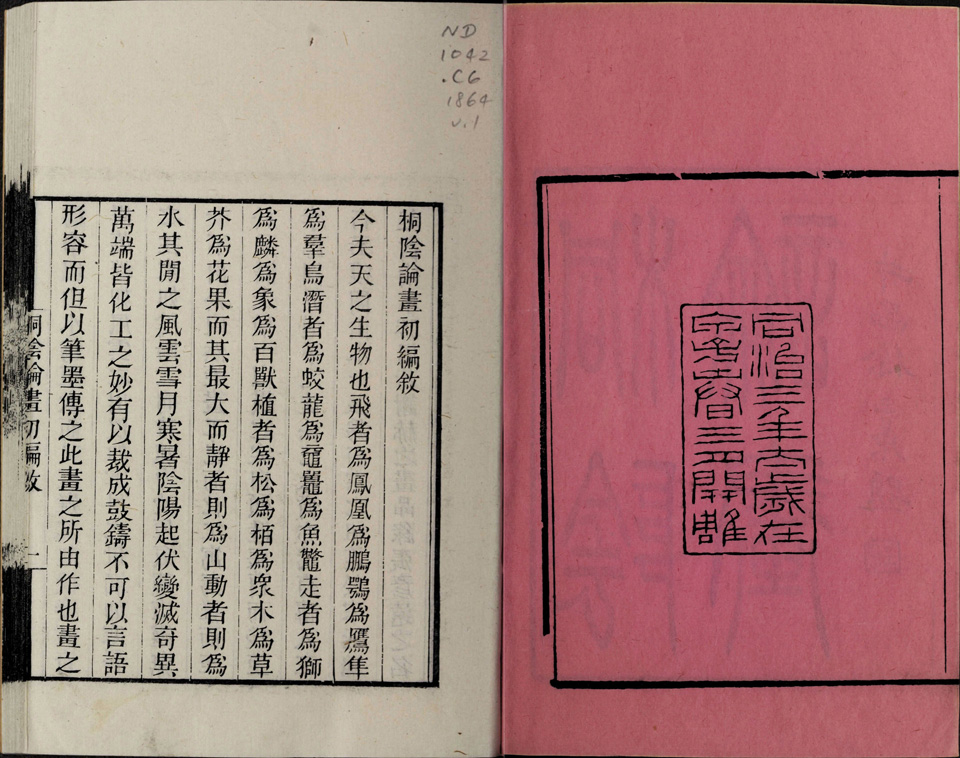 同治三年太歲在
甲子春三月開雕
ND
1042
.C6
1864
v.1
桐陰論畫初編敘
今夫天之生物也飛者爲鳳凰爲鵬鶚爲鷹隼
爲羣鳥潛者爲蛟龍爲黿鼉爲魚鼈走者爲獅
爲麟爲象爲百獸植者爲松爲栢爲衆木爲草
芥爲花果而其最大而靜者則爲山動者則爲
水其閒之風雲雪月寒暑陰陽起伏變滅奇異
萬端皆化工之妙有以裁成鼓鑄不可以言語
形容而但以筆墨傳之此畫之所由作也畫之
桐陰論畫初編敘 一